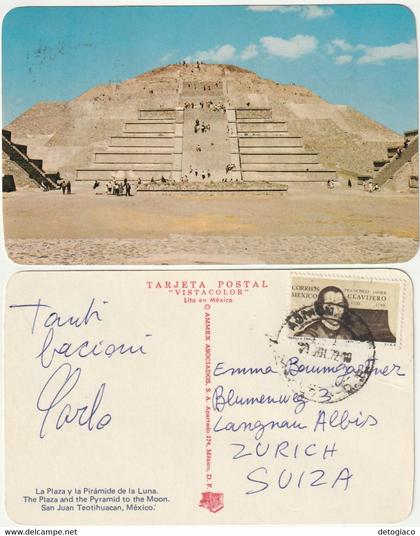 TARJETA POSTAL
"VISTACOLOR"
Lito en México
© AMMEX ASOCIADOS, S. A. Apartado 274, México, D. F.
CORREOS
MEXICO
FRANCISCO JAVIER
CLAVIJERO
Tanti
bacioni
Carlo
Emma Baumgartner
Blumenweg 3
Langnau Albis
ZURICH
SUIZA
La Plaza y la Pirámide de la Luna.
The Plaza and the Pyramid to the Moon.
San Juan Teotihuacan, México.
www.delcampe.net
detogiaco